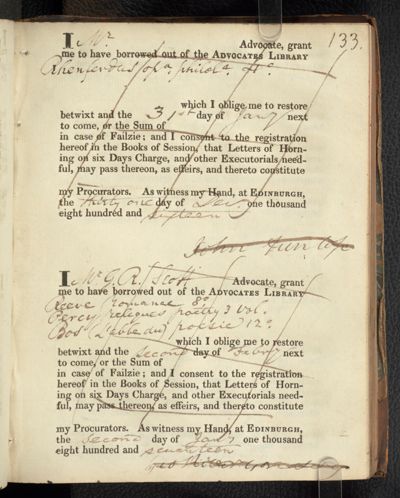 133.
I Mr Advocate, grant
me to have borrowed out of the ADVOCATES LIBRARY
which I oblige me to restore
betwixt and the 31st day of Jany next
to come, or the Sum of
in case of Failzie; and I consent to the registration
hereof in the Books of Session, that Letters of Horn-
ing on six Days Charge, and other Executorials need-
ful, may pass thereon, as effeirs, and thereto constitute
my Procurators. As witness my Hand, at EDINBURGH,
the thirty one day of Decr one thousand
eight hundred and sixteen
John
I Mr G. R. Scott Advocate, grant
me to have borrowed out of the ADVOCATES LIBRARY
Reeve Romance 8o
Percy reliques poetry 3 vol.
poesie 12o
which I oblige me to restore
betwixt and the second day of Febry next
to come, or the Sum of
in case of Failzie; and I consent to the registration
hereof in the Books of Session, that Letters of Horn-
ing on six Days Charge, and other Executorials need-
ful, may pass thereon, as effeirs, and thereto constitute
my Procurators. As witness my Hand, at EDINBURGH,
the second day of Jany one thousand
eight hundred and seventeen